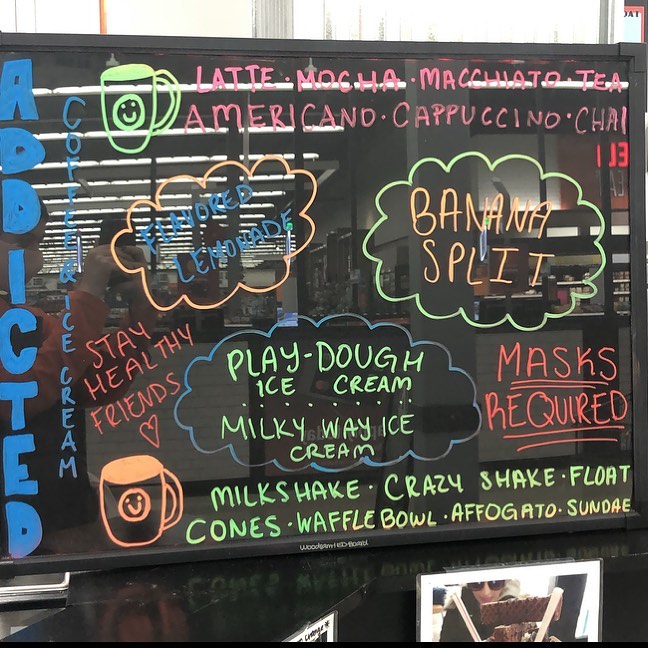 ADDICTED
COFFEE & ICE CREAM
LATTE · MOCHA · MACCHIATO · TEA
AMERICANO · CAPPUCCINO · CHAI
FLAVORED
LEMONADE
BANANA
SPLIT
STAY
HEALTHY
FRIENDS
PLAY-DOUGH
ICE CREAM
MILKY WAY ICE
CREAM
MASKS
REQUIRED
MILKSHAKE · CRAZY SHAKE · FLOAT
CONES · WAFFLE BOWL · AFFOGATO · SUNDAE